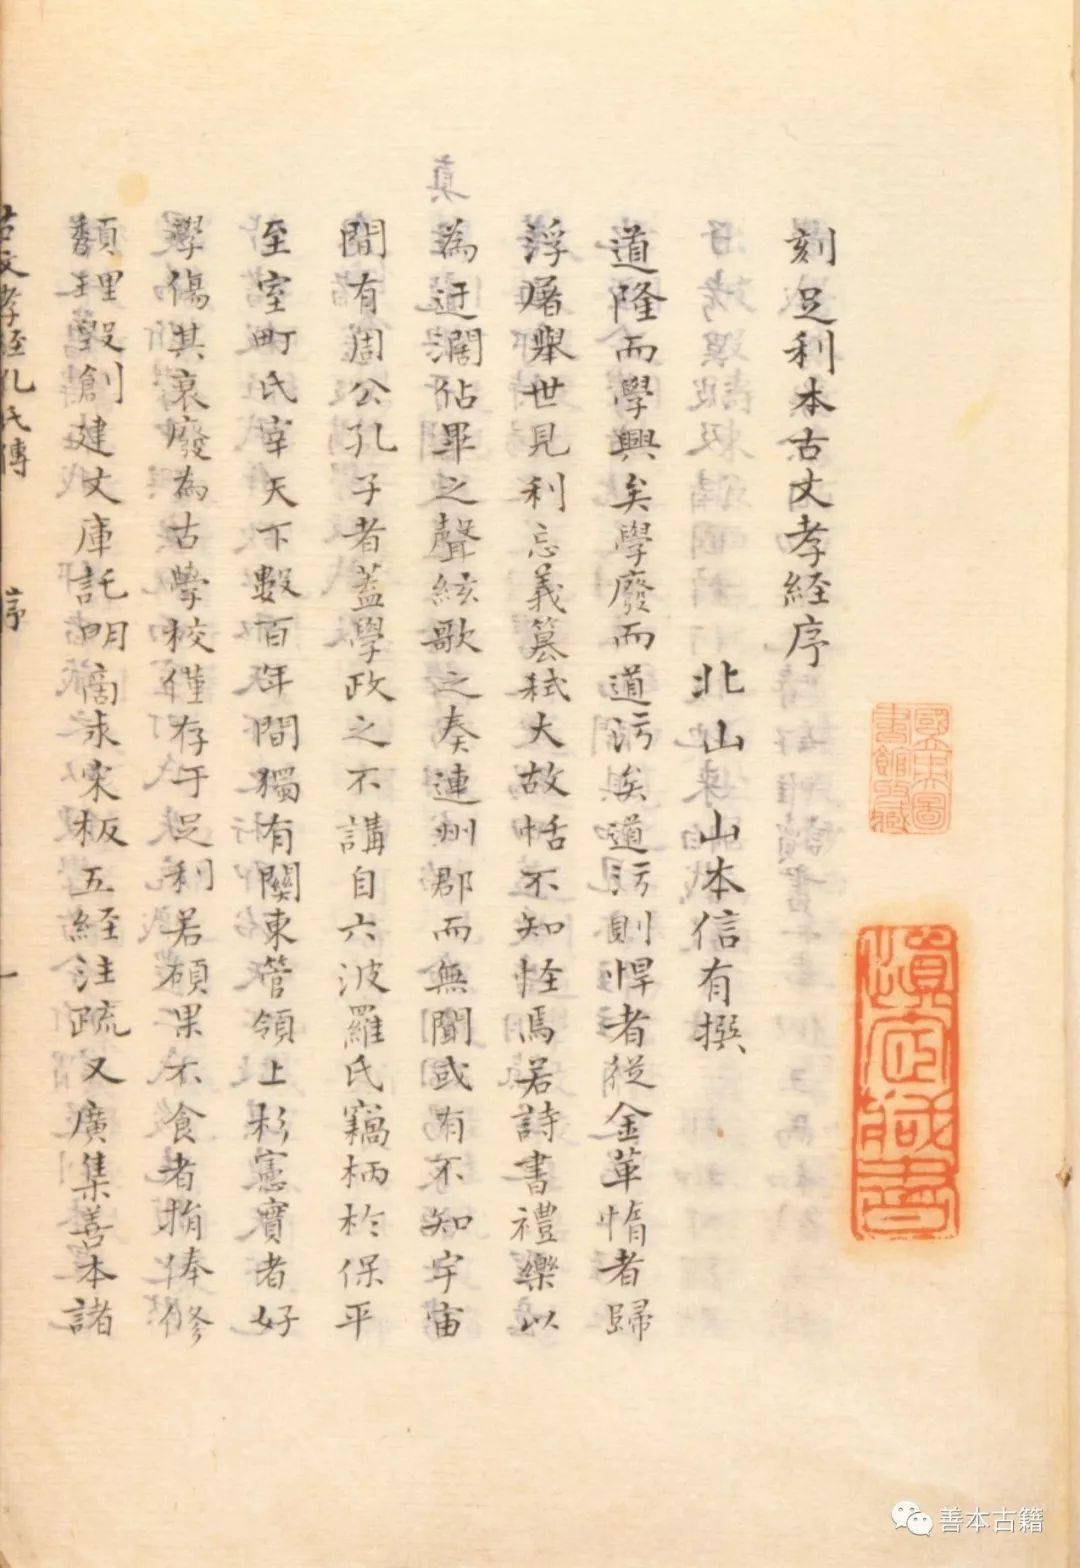 刻足利本古文孝経序
北山山本信有撰
道隆而學興矣學廢而道污矣道污則悍者從金革惰者歸
浮屠舉世見利忘義簒弑大故恬不知怪焉若詩書禮樂以
為迂濶佔畢之聲絃歌之奏連州郡而無聞或有不知宇宙
間有周公孔子者蓋學政之不講自六波羅氏竊柄於保平
至室町氏宰天下數百年間獨有關東管領上杉憲實者好
學傷其衰廢為古學校僅存于足利若碩果不食者捐俸修
頽理毀創建文庫託明商求宋板五経注疏又廣集善本諸
古文孝経孔氏傳 序 一
國立中央圖
書館收藏
善本古籍